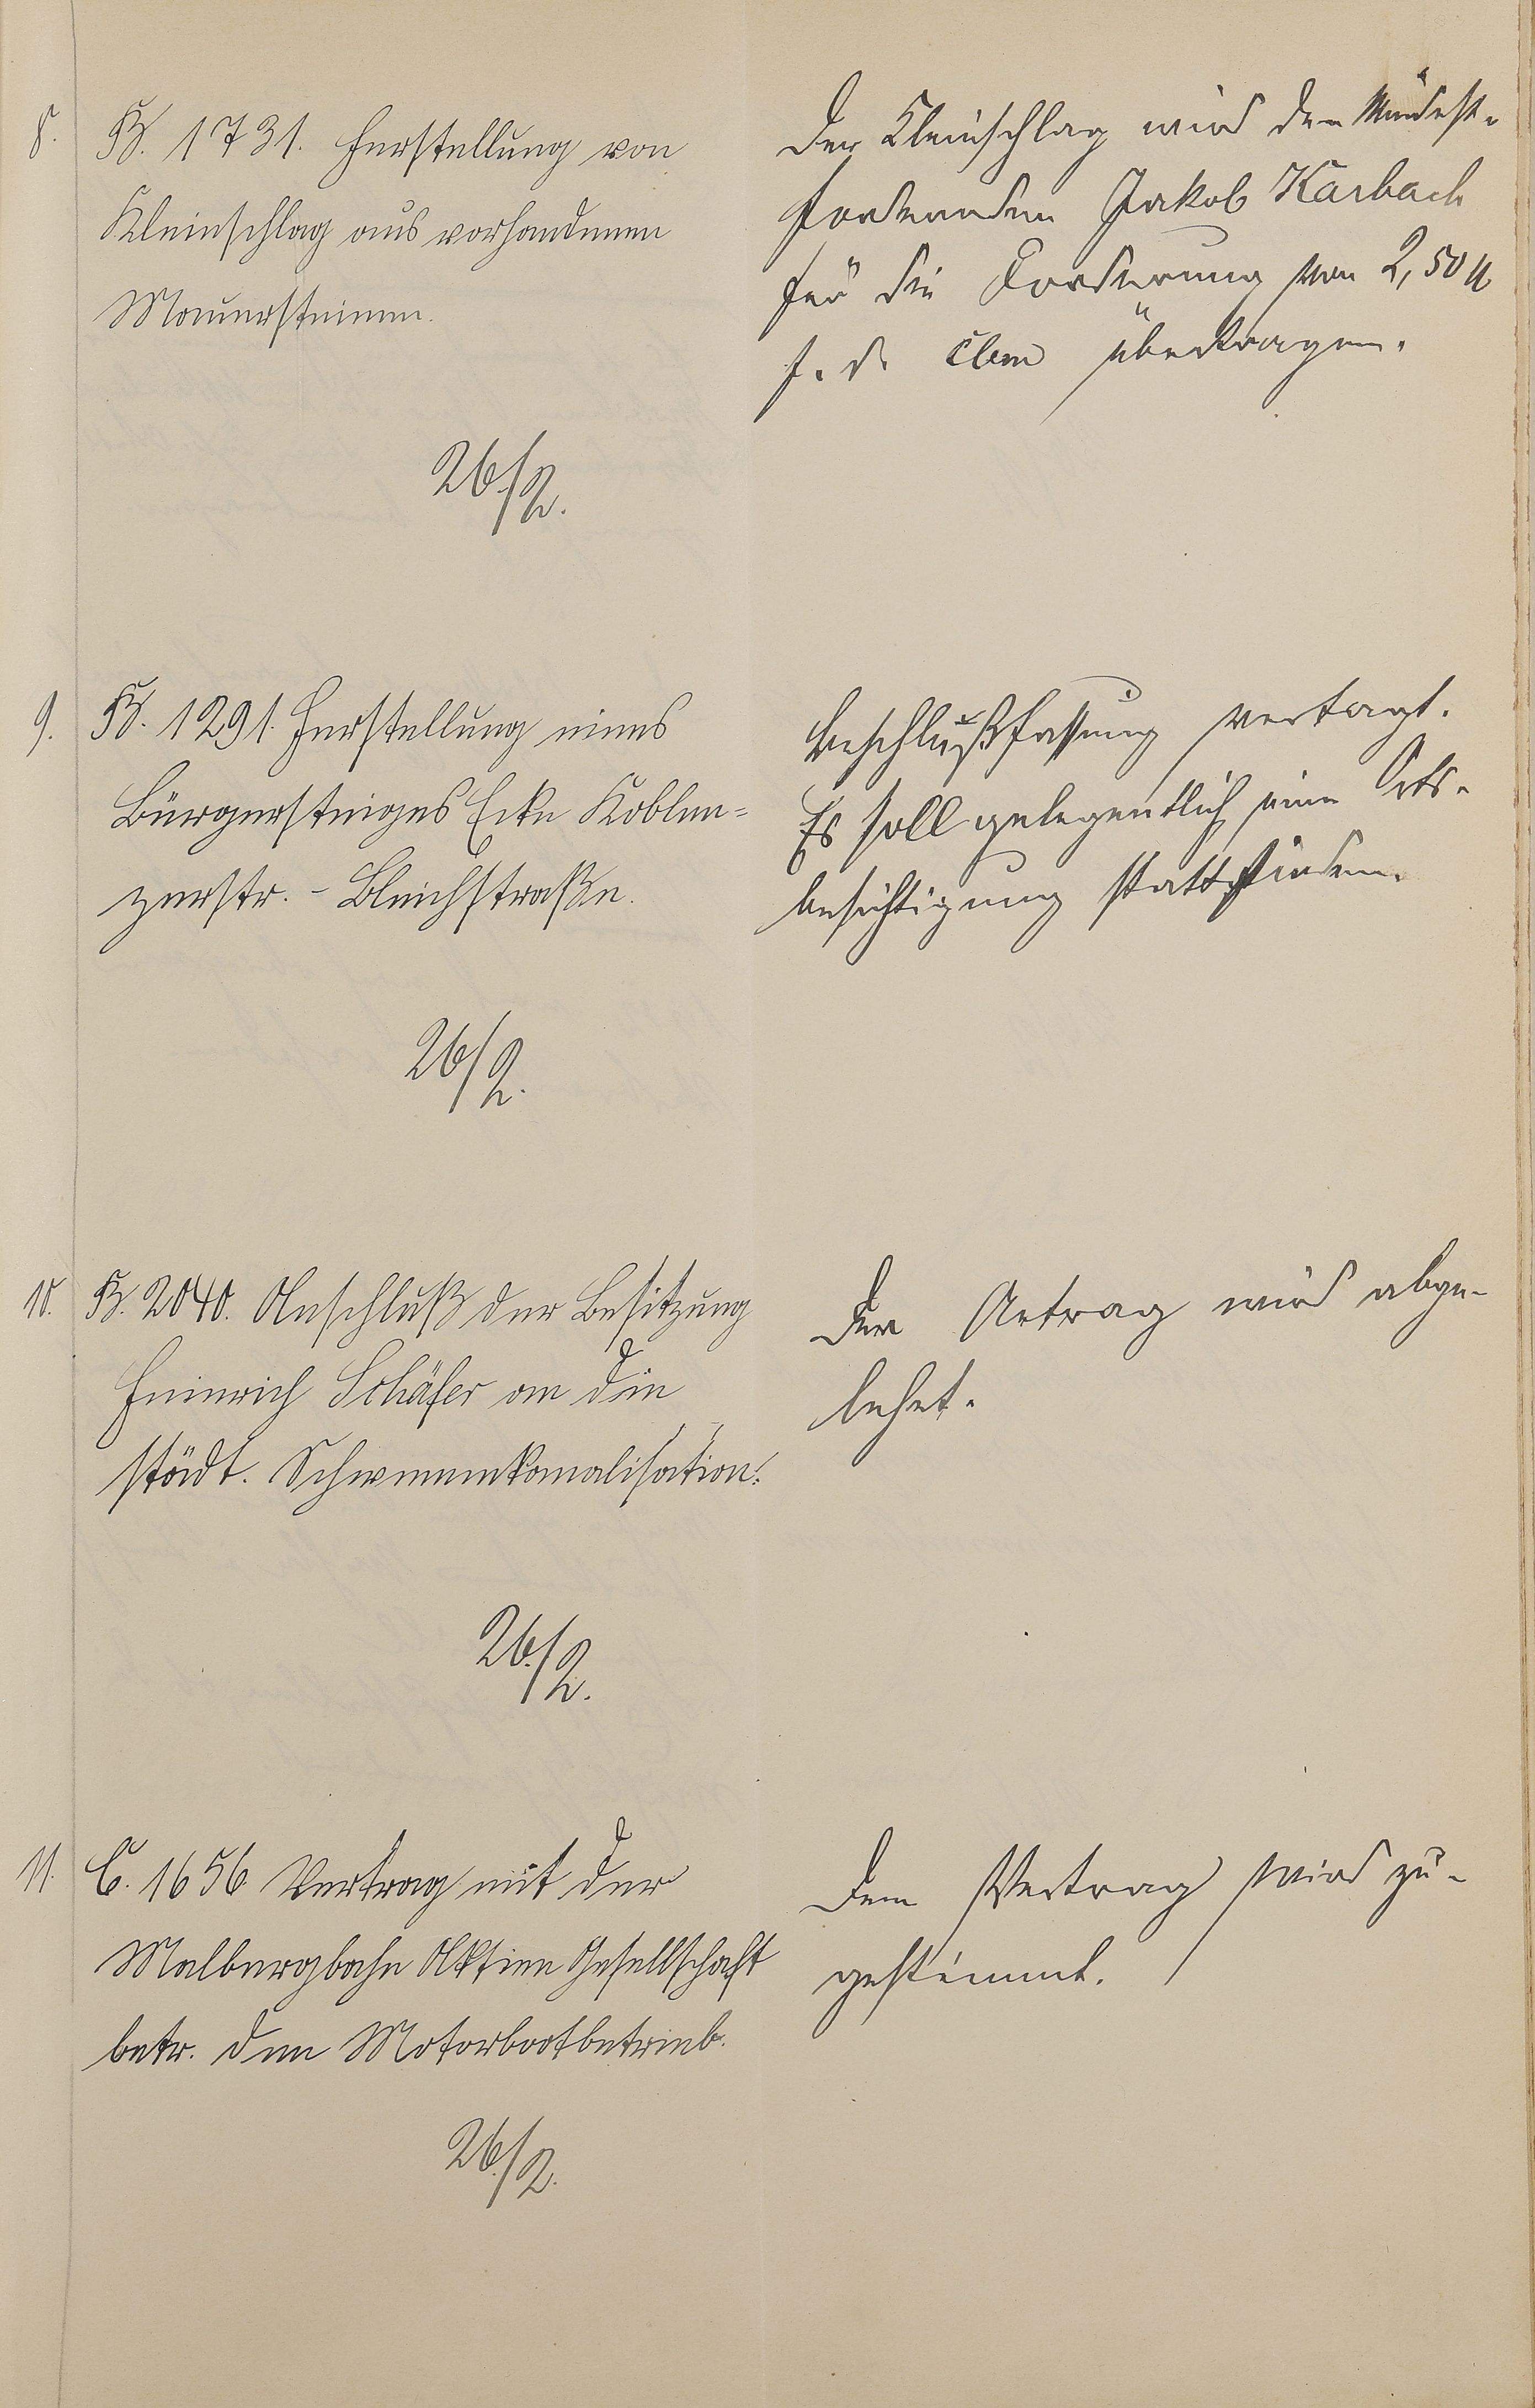 8.
B. 1731. Herstellung von
Kleinschlag aus vorhandenen
Mauersteinen.
26./2.
Der Kleinschlag wird dem Mindest-
fordernden Jakob Karbach
für die Forderung von 2,50 M
f. d. cbm übertragen.
9.
B. 1291. Herstellung eines
Bürgersteiges Ecke Koblen=
zerstr. - Bleichstraße.
26/2.
Beschlußfassung vertagt.
Es soll gelegentlich eine Orts-
besichtigung stattfinden.
10.
B. 2040. Anschluß der Besitzung
Heinrich Schäfer an die
städt. Schwemmkanalisation.
26./2.
Der Antrag wird abge-
lehnt.
11.
C. 1656 Vertrag mit der
Malbergbahn Aktien Gesellschaft
betr. den Motorbootbetrieb.
26./2.
Dem Vertrag wird zu-
gestimmt.